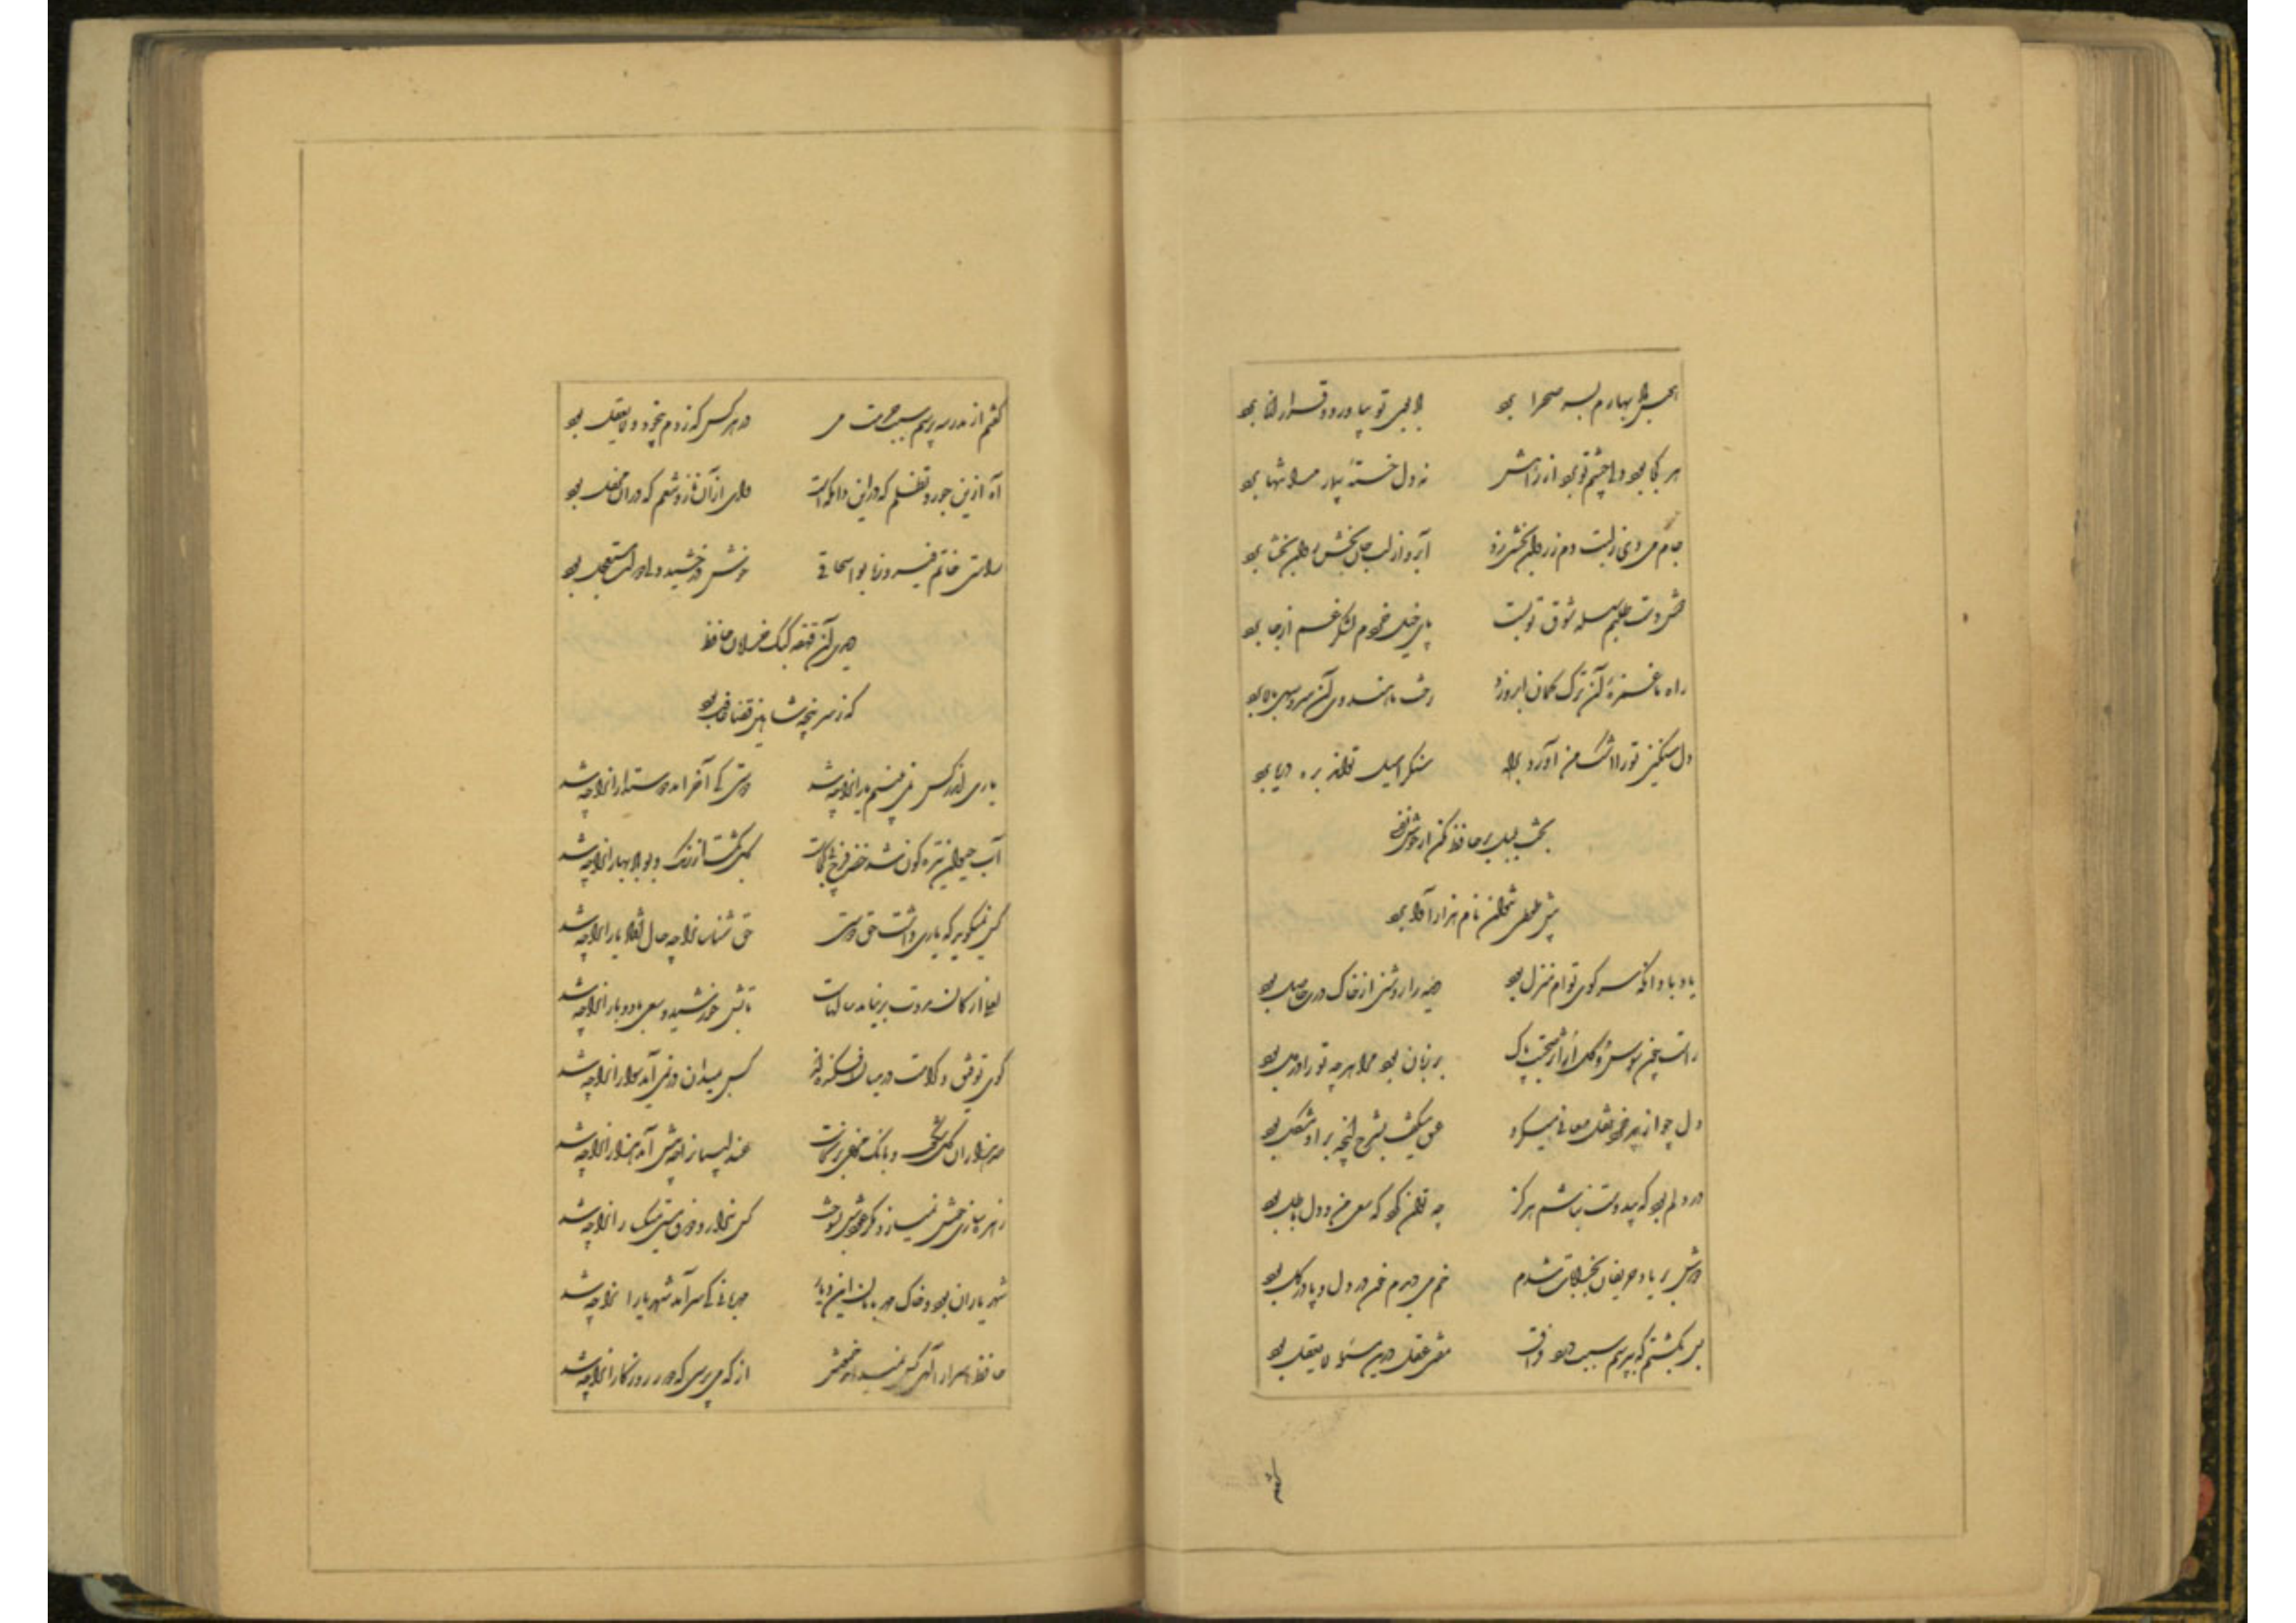 هوس باد بهارم بسوی صحرا برد باد بوی تو بیاورد و قرار از ما برد
هر کجا بود دلی چشم تو برد از راهش نه دل خسته بیمار مرا تنها برد
جام می دی ز لبت دم ز روان بخشی زد آبرو از لب جان بخش روان بخشا برد
دست طلبم سلسله شوق تو بست پای خیل خردم لشکر غم از جا برد
راه ما غمزهٔ آن ترک کمان ابرو زد رخت ما هندوی آن سرو سهی بالا برد
دل سنگین تو را اشک من آورد براه سنگ را سیل تواند بره دریا برد
بحث بلبل بر حافظ مکن از خوش نفسی
پیش طوطی نتوان نام هزار آوا برد
یاد باد آنکه سر کوی توام منزل بود دیده را روشنی از خاک درت حاصل بود
راست چون سوسن و گل از اثر صحبت پاک بر زبان بود مرا هرچه تو را در دل بود
دل چو از پیر خرد نقل معانی میکرد عشق میگفت بشرح آنچه بر او مشکل بود
در دلم بود که بی دوست نباشم هرگز چه توان کرد که سعی من و دل باطل بود
دوش بر یاد حریفان بخرابات شدم خم می دیدم خون در دل و پا در گل بود
بس بگشتم که بپرسم سبب درد فراق مفتی عقل درین مسئله لایعقل بود
گفتم
گفتم از مدرسه پرسم سبب حرمت می در هر کس که زدم بیخود و لایعقل بود
آه ازین جور و تظلم که درین دامگه است وای از آن ناز و تنعم که در آن محفل بود
راستی خاتم فیروزه بو اسحاقی خوش درخشید ولی دولت مستعجل بود
دیدی آن قهقهه کبک خرامان حافظ
که ز سر پنجه شاهین قضا غافل بود
یاری اندر کس نمی بینیم یاران را چه شد دوستی کی آخر آمد دوستداران را چه شد
آب حیوان تیره گون شد خضر فرخ پی کجاست گل بگشت از رنگ و بو باد بهاران را چه شد
کس نمیگوید که یاری داشت حق دوستی حق شناسان را چه حال افتاد یاران را چه شد
لعلی از کان مروت برنیامد سالهاست تابش خورشید و سعی باد و باران را چه شد
گوی توفیق و کرامت در میان افکنده اند کس بمیدان در نمی آید سواران را چه شد
صد هزاران گل شکفت و بانگ مرغی برنخاست عندلیبان را چه پیش آمد هزاران را چه شد
زهره سازی خوش نمیسازد مگر عودش بسوخت کس ندارد ذوق مستی میگساران را چه شد
شهر یاران بود و خاک مهربانان این دیار مهربانی کی سر آمد شهریاران را چه شد
حافظ اسرار الهی کس نمیداند خمش از که می پرسی که دور روزگاران را چه شد